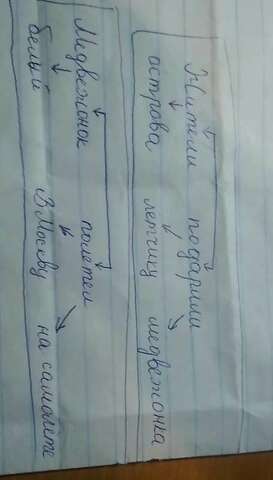 Жители подарили
острова летчику медвежонка
Медвежонок полетел
белый В Москву на самолете